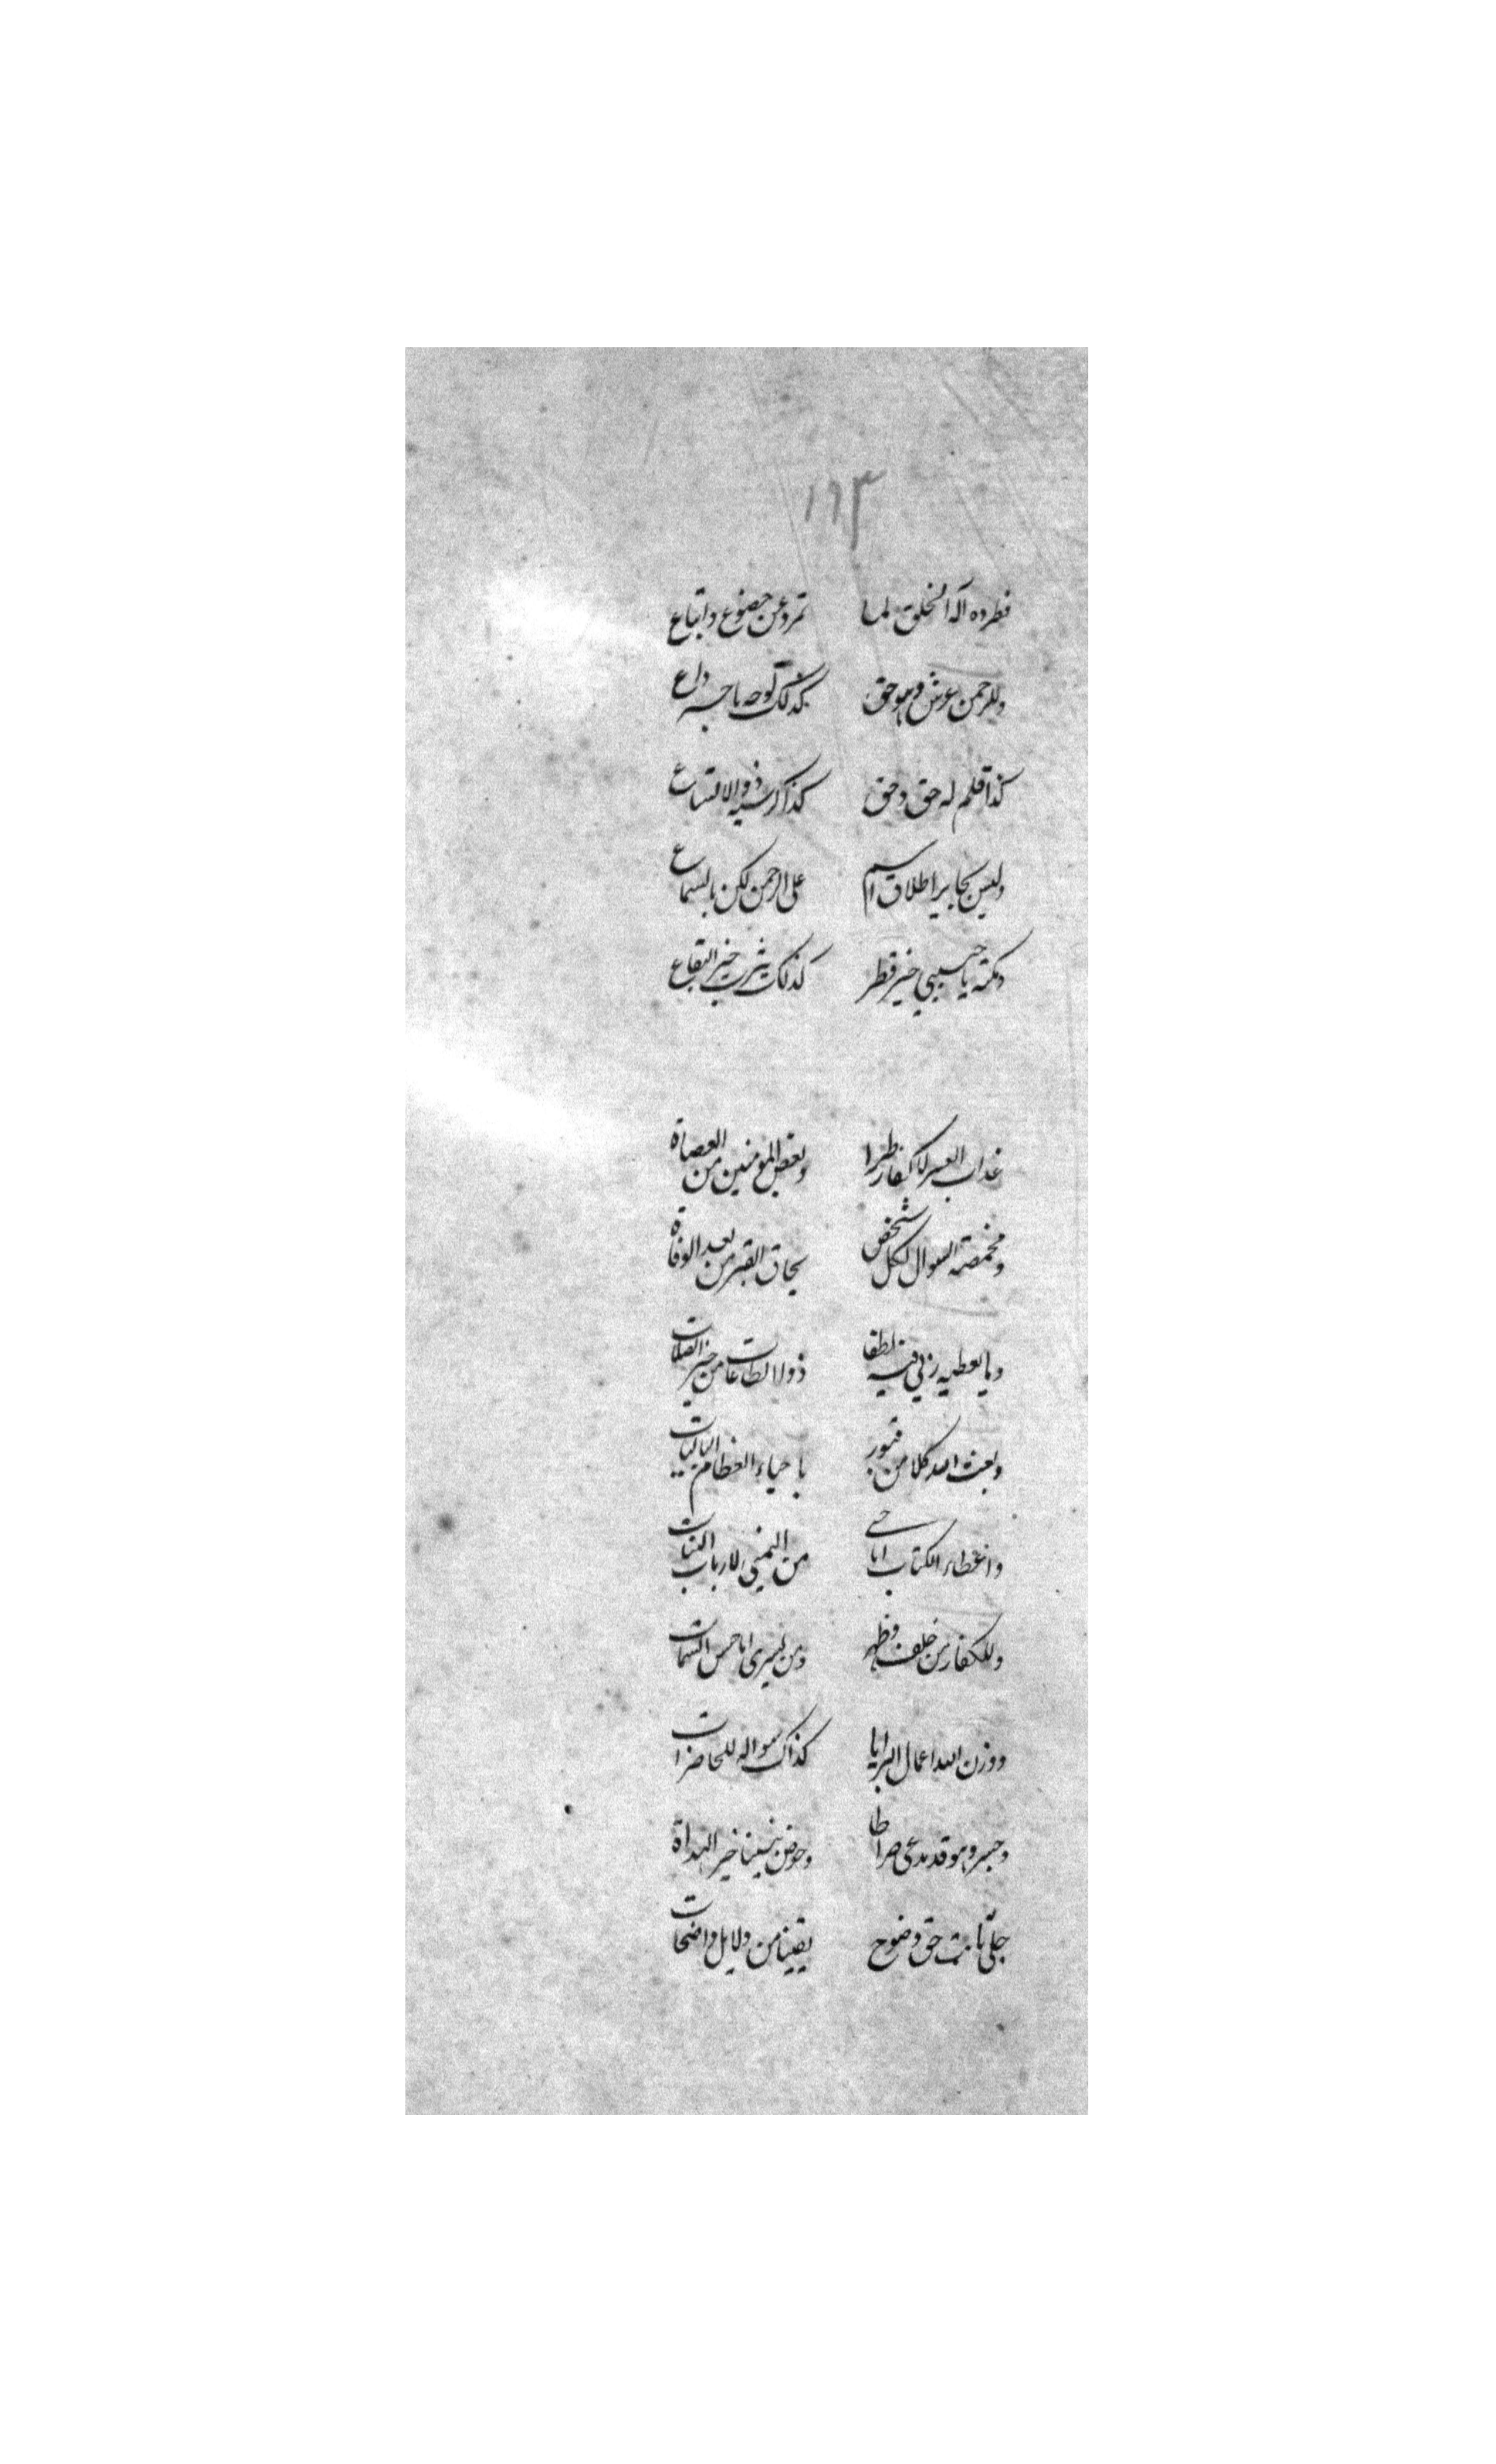 ١٦٣
فطرده اله الخلق لما تمرد عن خضوع واتباع
وللرحمن عرش وهو حق كذلك لوحه يا خير داع
كذا قلم له حق وحق كذا كرسيه ذو الاتساع
وليس بجايز اطلاق اسم على الرحمن لكن بالسماع
ومكة يا حبيبي خير قطر كذلك يثرب خير البقاع
عذاب القبر للكفار طرا وبعض المومنين من العصاة
ومخمصة السوال لكل شخص بحاق القبر من بعد الوفاة
وما يعطيه ربي فيه لطفا ذوو الطاعات من خير الصلات
وبعث الله كلا من قبور باحياء العظام الباليات
واعطاء الكتاب اناس من اليمنى لارباب
وللكفار من خلف وظهر ومن يسرى اناحس السمات
ووزن الله اعمال البرايا كذاك سواله للحاضرات
وجسر وهو قد يدعى صراطا وحوض نبينا خير الهداة
جلي ثابت حق وضوح يقينا من دلايل واضحات